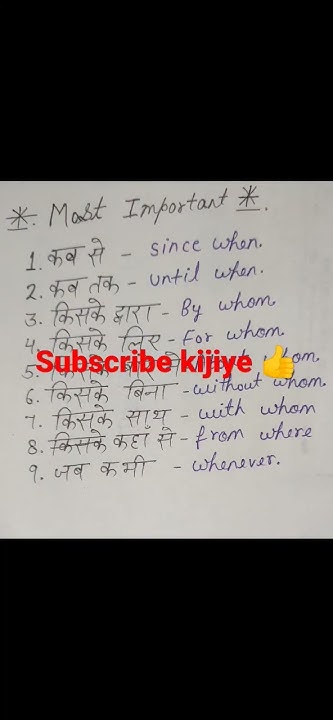 *. Most Important *.
1. कब से - since when.
2. कब तक - until when.
3. किसके द्वारा - By whom
4. किसके लिए - For whom.
Subscribe kijiye 👍
5.
6. किसके बिना - without whom.
7. किसके साथ - with whom
8. किसके कहाँ से - from where
9. जब कभी - whenever.